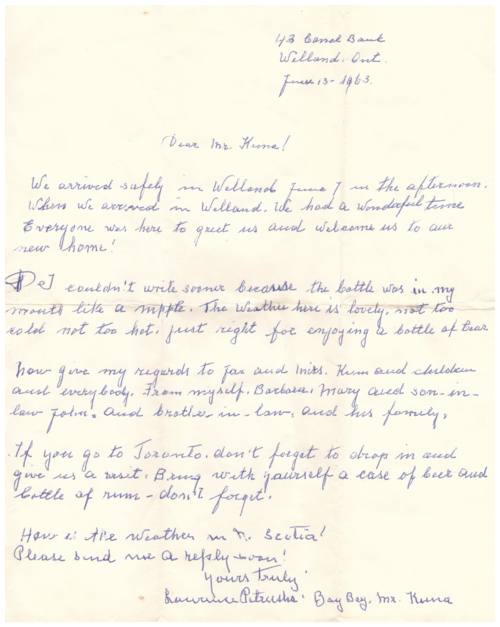 43 Canal Bank
Welland. Ont.
June 13 - 1963.
Dear Mr. Kuna!
We arrived safely in Welland June 7 in the afternoon.
When we arrived in Welland. We had a wonderful time
Everyone was here to greet us and welcome us to our
new home!
I couldn't write sooner because the bottle was in my
mouth like a nipple. The Weather here is lovely, not too
cold not too hot, just right for enjoying a bottle of bear
now give my regards to and Mrs. Kuna and children
and everybody. From myself, Barbara, Mary and son-in-
law John. and brother-in-law, and his family,
If you go to Toronto, don't forget to drop in and
give us a visit. Bring with yourself a case of beer and
bottle of rum - don't forget.
How is the Weather in N. Scotia!
Please send me a reply soon!
Yours truly
Lawrence Petrusha. Bay Bay, Mr. Kuna